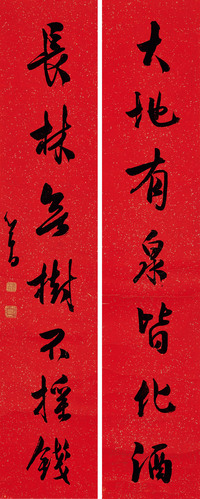 大地有泉皆化酒
長林無樹不摇錢
心畬